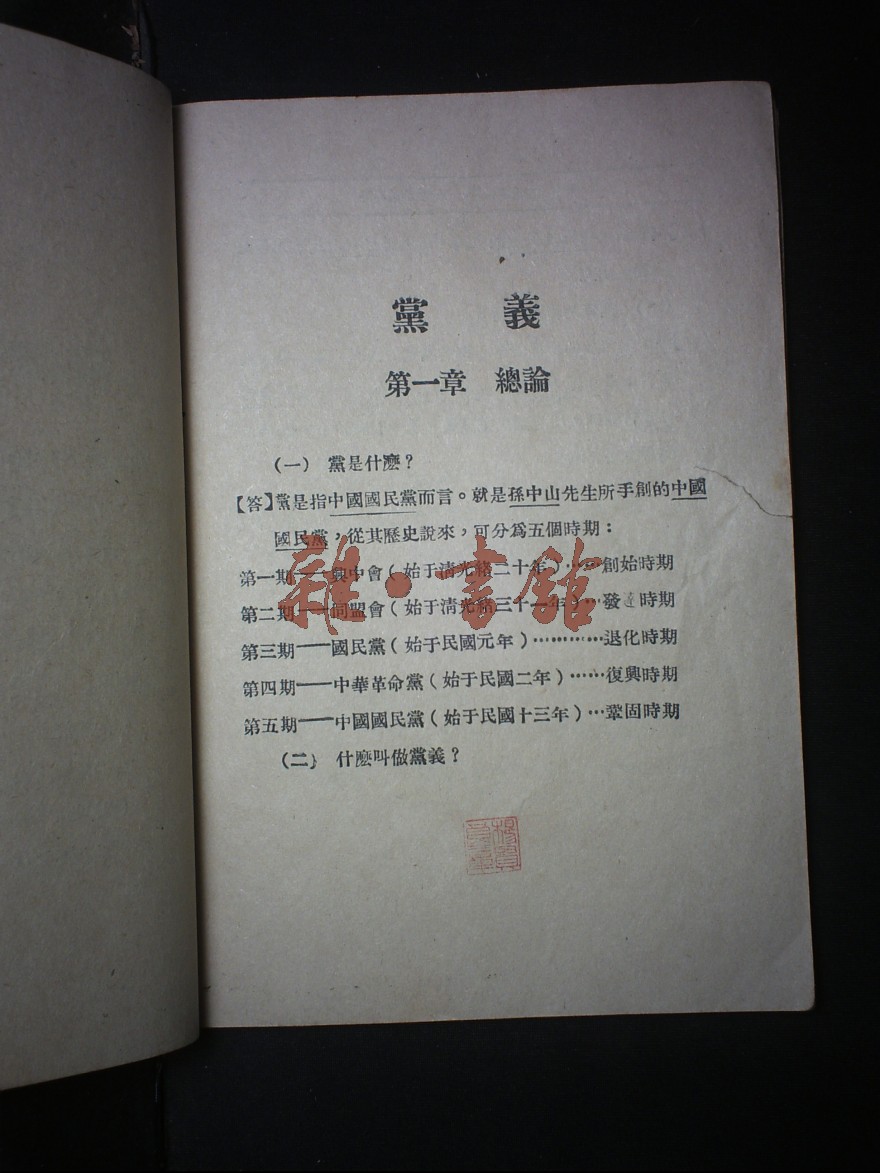 黨 義
第一章 總論
(一) 黨是什麽?
【答】黨是指中國國民黨而言。就是孫中山先生所手創的中國
國民黨,從其歷史說來,可分爲五個時期:
第一期——興中會(始于清光緒二十年)……創始時期
第二期——同盟會(始于清光緒三十一年)…發達時期
第三期——國民黨(始于民國元年)…………退化時期
第四期——中華革命黨(始于民國二年)……復興時期
第五期——中國國民黨(始于民國十三年)…鞏固時期
(二) 什麽叫做黨義?
雜·書館